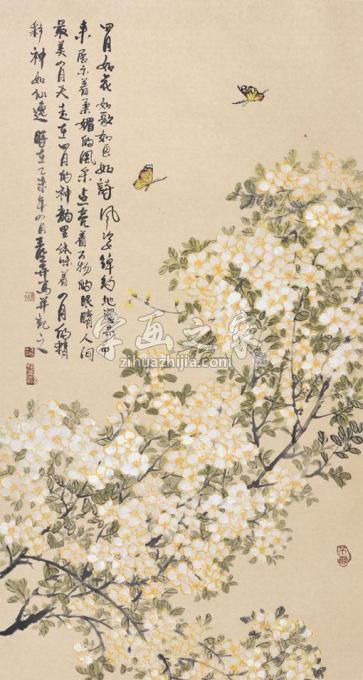 四月如花如歌如画如诗风姿绰约地
来展示着柔媚的风采点亮着万物的眼睛人间
最美四月天走在四月的神韵里体味着四月的精
彩神如仙逸时在乙未年四月
写并记之
字画之家
zihuazhijia.com